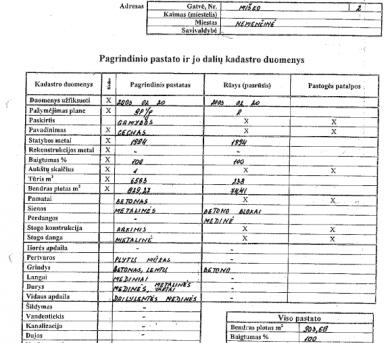 Adresas
Gatvė, Nr. MIŠKO 2
Kaimas (miestelis)
Miestas NEMENČINĖ
Savivaldybė
Pagrindinio pastato ir jo dalių kadastro duomenys
Kadastro duomenys Pagrindinis pastatas Rūsys (pusrūsis) Pastogės patalpos
Duomenys užfiksuoti X 2003 02 20 2003 02 20
Pažymėjimas plane X
Paskirtis GAMYBOS X X
Pavadinimas X CECHAS X X
Statybos metai X 1984 1984
Rekonstrukcijos metai X - -
Baigtumas % X 100 100
Aukštų skaičius X 1 X X
Tūris m³ X 6583 238
Bendras plotas m² X
Pamatai BETONAS X X
Sienos METALINĖS BETONO BLOKAI
Perdangos - MEDINĖ
Stogo konstrukcija X X
Stogo danga METALINĖ X X
Išorės apdaila - -
Pertvaros PLYTŲ MŪRAS -
Grindys BETONAS, LENTŲ BETONO
Langai MEDINIAI -
Durys MEDINĖS, METALINĖS -
Vidaus apdaila DAILYLENTĖS MEDINĖS -
Šildymas -
Vandentiekis -
Kanalizacija -
Dujos -
Viso pastato
Bendras plotas m²
Baigtumas % 100